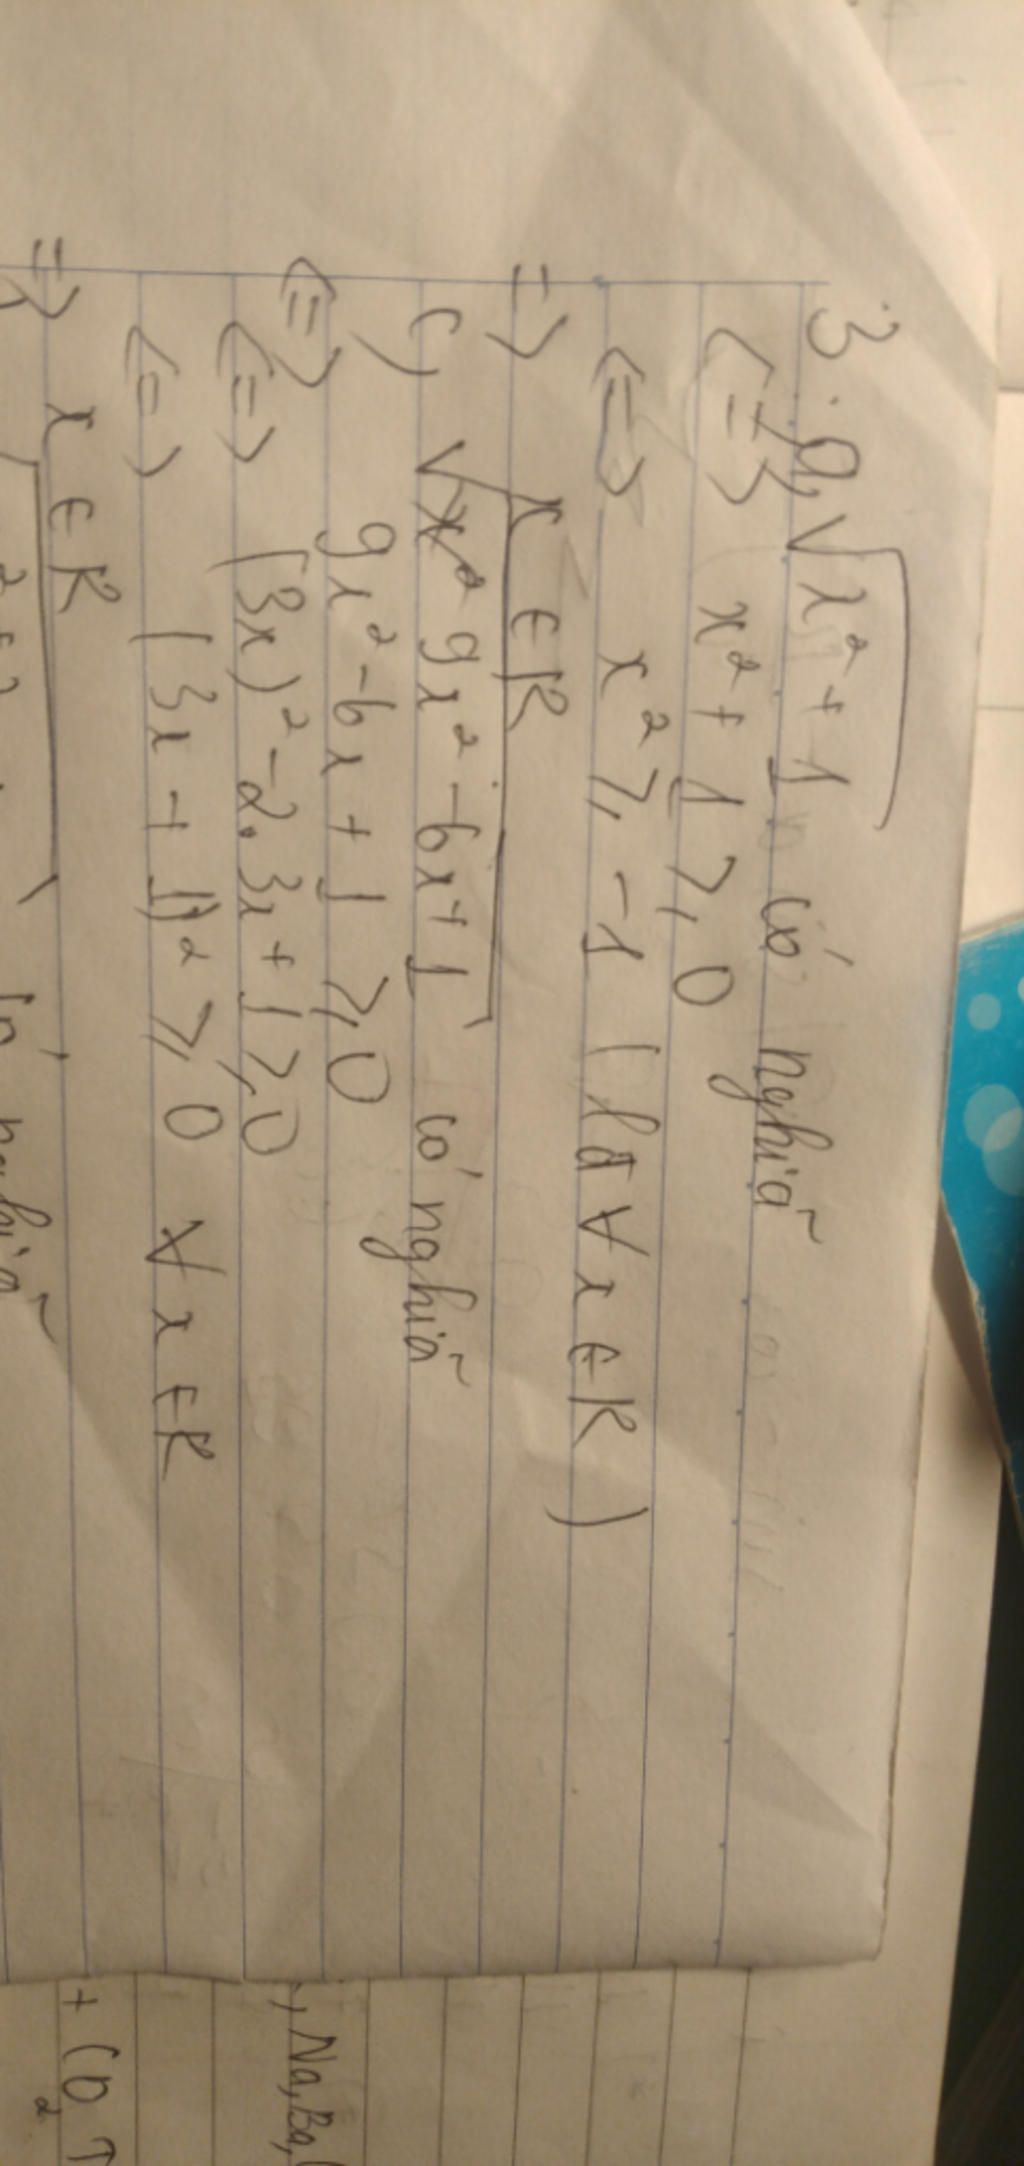 3. a, √x² + 1 có nghĩa
<=> x² + 1 ≥ 0
<=> x² ≥ -1 (lđ ∀ x ∈ R)
=> x ∈ R
c, √9x² - 6x + 1 có nghĩa
<=> 9x² - 6x + 1 ≥ 0
<=> (3x)² - 2.3x + 1 ≥ 0
<=> (3x - 1)² ≥ 0 ∀ x ∈ R
=> x ∈ R
có nghĩa
, Na, Ba,